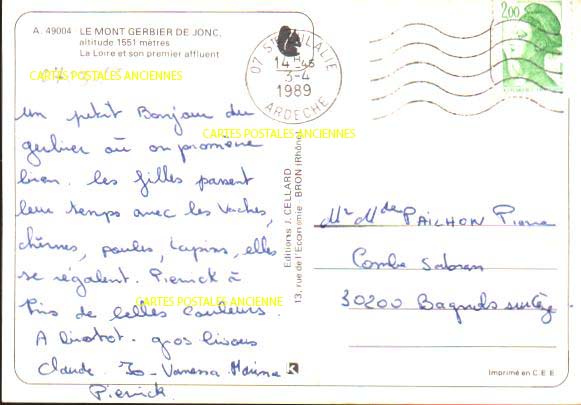 A. 49004 LE MONT GERBIER DE JONC,
altitude 1551 mètres
La Loire et son premier affluent
CARTES POSTALES ANCIENNES
un petit Bonjour du
gerbier où on promène
bien. les filles passent
leur temps avec les Vaches,
chèvres, poules, lapins, elles
se régalent. Pierrick à
pris de belles couleurs.
A bientôt. gros bisous
Claude. Jo - Vanessa. Marina
Pierrick.
CARTES POSTALES ANCIENNES
CARTES POSTALES ANCIENNE
Editions J. CELLARD
13, rue de l'Economie - BRON (Rhône)
07 EULALIE
14 H 45
3-4
1989
ARDECHE
2,00
Mr Mde PAILHON Pierre
Combe Sabran
30200 Bagnols sur Cèze
K
Imprimé en C.E.E.